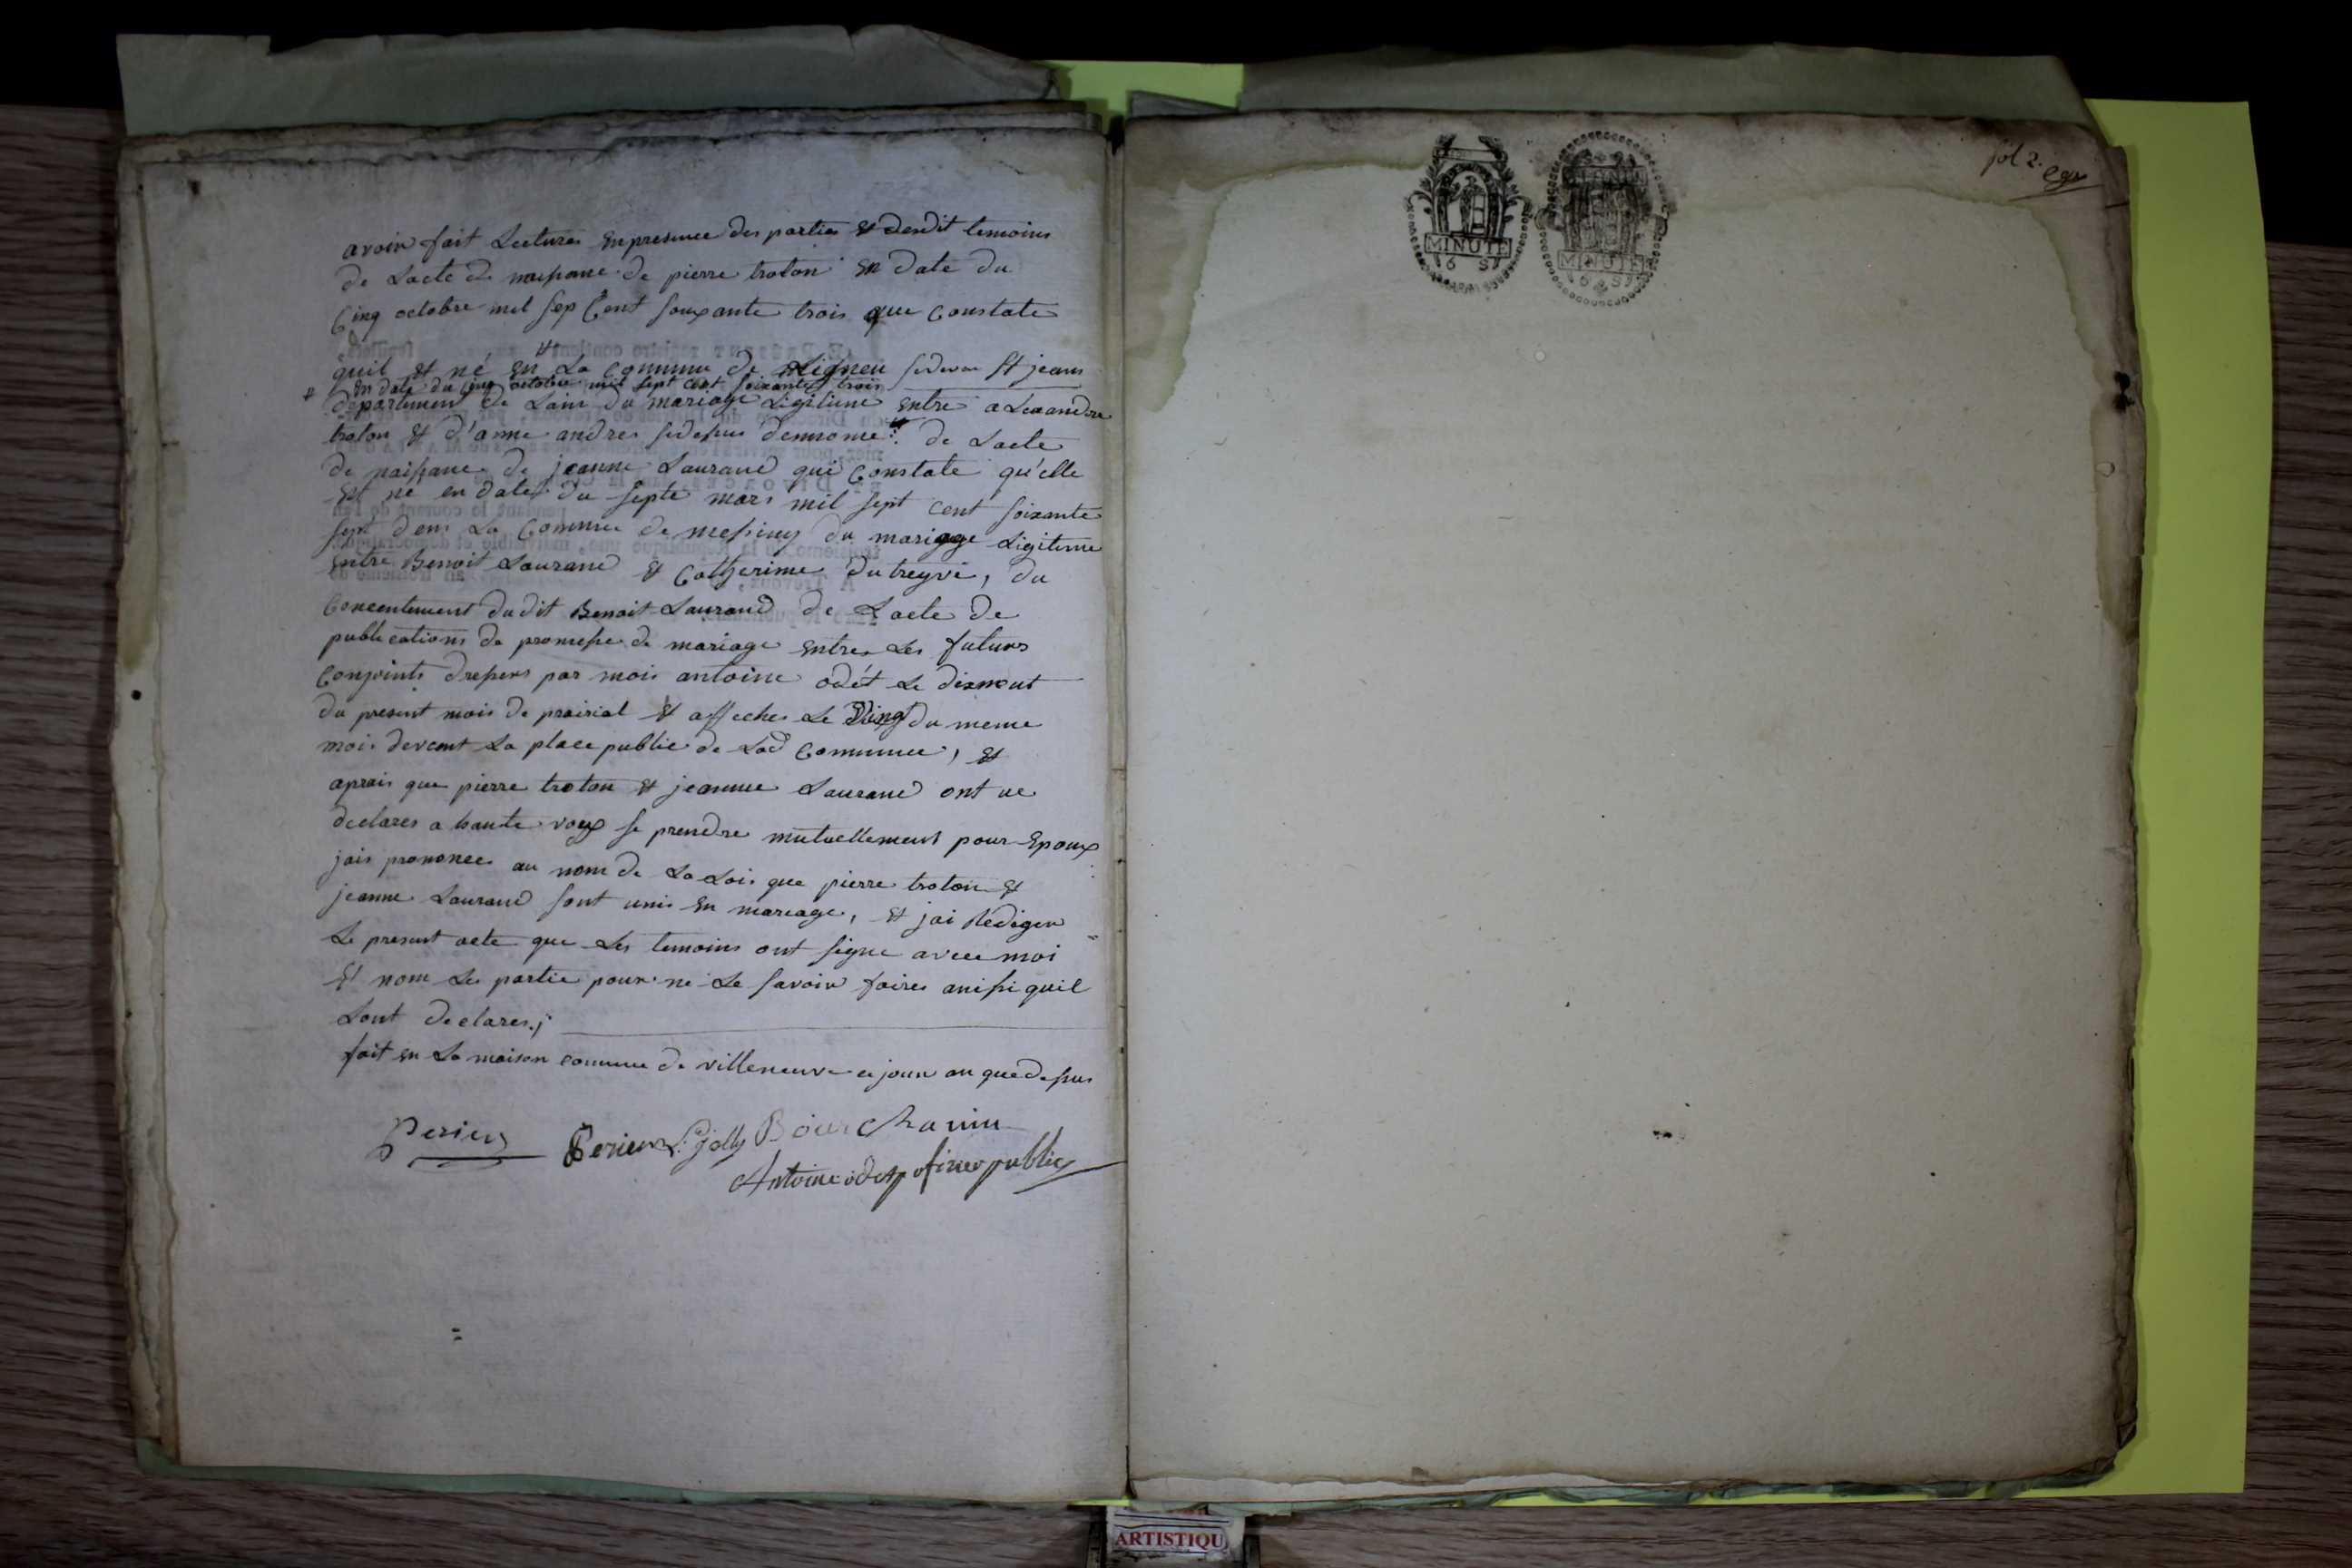 avoir fait Lectures en presence des partie et desdit temoins
de Lacte de naissance de pierre troton en date du
Cinq octobre mil sep Cent souxante trois que Constate
quil et né en La Commune de Ligneu sidevan St jeans
# en date du cinq octobre mil sept cent soixante trois
departement de Lain du mariage Ligitime entre aLexandre
troton et d'anne andres sidessus dennome # de Lacte
de naissance de jeanne Laurand qui Constate qu'elle
est né en date du septe mars mil sept cent soixante
sept dens La Commune de messimy du mariage Ligitime
entre Benoit Laurand et Catherime dutreyve, du
Concentement dudit Benoit Laurand de Lacte de
publications de promesse de mariage entre Les futurs
Conjoints dressers par mois antoine odét Le dixneut
du present mois de prairial et affeches Le Ving du meme
mois devent La place public de Lad Commune, et
aprais que pierre troton et jeanne Laurand ont ue
declares a haute voix se prendre mutuellement pour Epoux
jais prononcer au nom de La Lois que pierre troton et
jeanne Laurand sont unis en mareage, et jai Rediger
Le present acte que Les temoins ont signe avec moi
et nom Les partie pour ne Le savoir faires anissi quil
Lont declares.;
fait en La maison commune de villeneuve ce jour an que dessus
Perier Perier L. jolly Bourchanin
Antoine odet ofisier public
fol 2.
MINUTE
6 S
MINUTE
6 S
ARTISTIQU